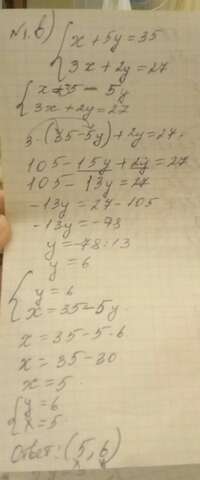 №1. б) { x + 5y = 35
3x + 2y = 27
{ x = 35 - 5y
3x + 2y = 27
3 · (35-5y) + 2y = 27
105 - 15y + 2y = 27
105 - 13y = 27
-13y = 27 - 105
-13y = -78
y = -78:13
y = 6
{ y = 6
x = 35 - 5y
x = 35 - 5·6
x = 35 - 30
x = 5
{ y = 6
x = 5
Ответ: (5, 6)